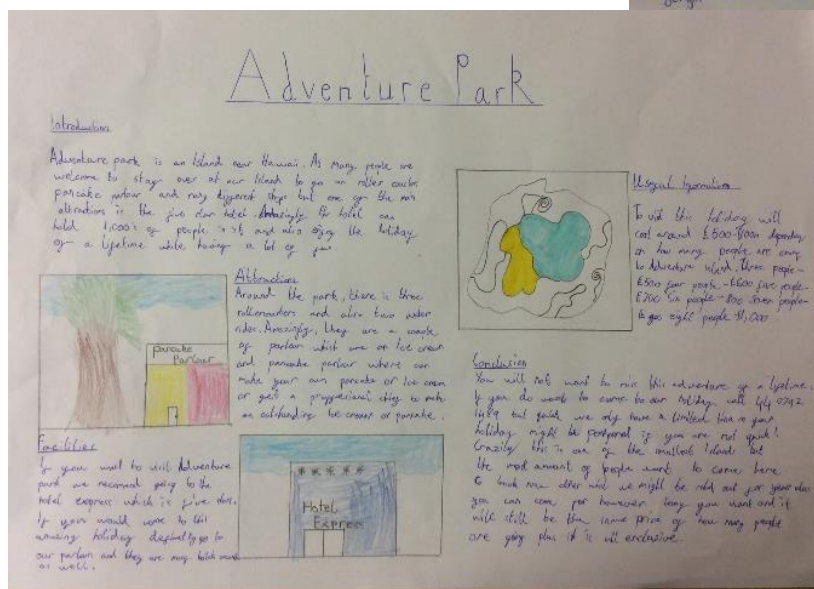 Adventure Park
Introduction
Adventure park is an island near Hawaii. As many people are
welcome to stay over at our island to go on roller coaster
pancake parlour and many different shops but one of the main
attractions is the five star hotel. Amazingly the hotel can
hold 1,000's of people in it and also enjoy the holiday
of a lifetime while having a lot of fun.
Attractions
Around the park, there is three
rollercoasters and also two water
rides. Amazingly, they are a couple
of parlours which are an Ice cream
and pancake parlour where can
make your own pancake or Ice cream
or get a proffesional to make
an outstanding ice cream or pancake.
Pancake
Parlour
Facilities
If you want to visit Adventure
park we recomend going to the
hotel express which is five star.
If your would come to this
amazing holiday go to
our parlours and they are many
as well.
Hotel
Express
Useful
To visit this holiday will
cost around £500-800 depending
on how many people are coming
to Adventure island. three people-
£500 four people-£600 five people-
£700 six people-800 seven people-
eight people £1,000
Conclusion
You will not want to miss this adventure of a lifetime.
If you do want to come to our holiday call
but quick we only have a limited time or your
holiday might be postponed if you are not quick!
Crazily this is one of the smallest islands but
the most amount of people want to come here
so book now other wise we might be sold out for year also
you can come for however long you want and it
will still be the same price of how many people
are going plus it is all inclusive.